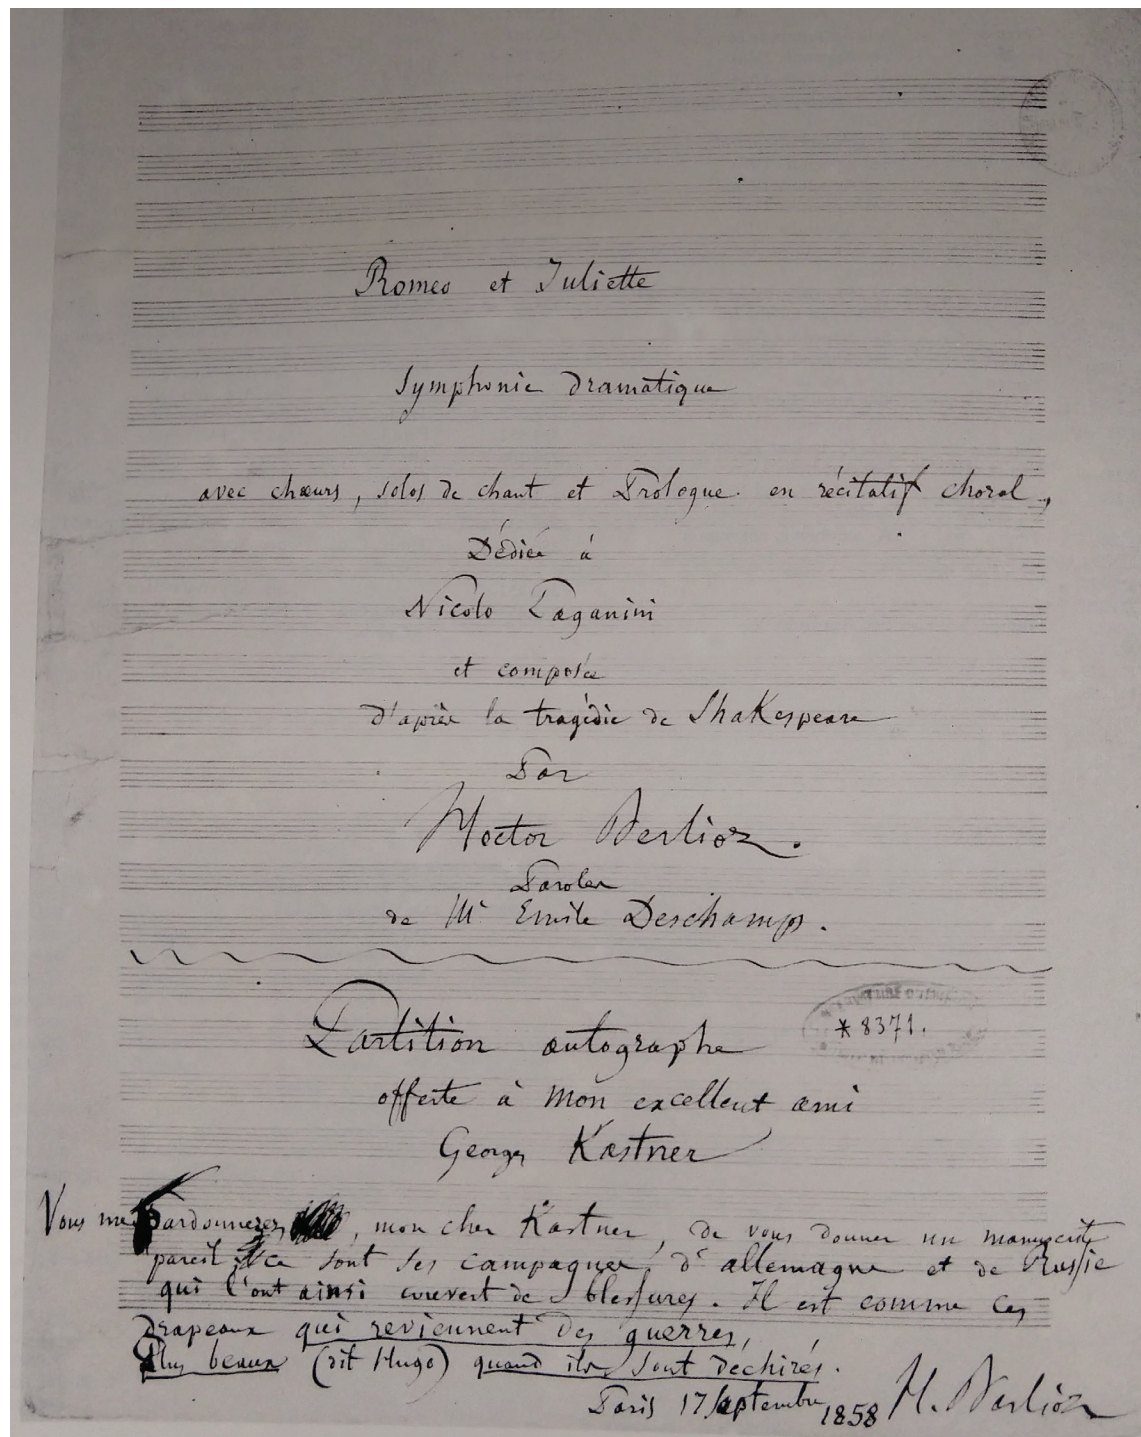 Romeo et Juliette
Symphonie dramatique
avec chœurs, solos de chant et Prologue en récitatif choral,
Dédiée à
Nicolo Paganini
et composée
d'après la tragédie de Shakespeare
Par
Hector Berlioz.
Paroles
de Mr Emile Deschamps.
Partition autographe
* 8371.
offerte à mon excellent ami
Georges Kastner
Vous me pardonnerez, mon cher Kastner, de vous donner un manuscrit
pareil; ce sont ses campagnes d'allemagne et de Russie
qui l'ont ainsi couvert de blessures. Il est comme ces
drapeaux qui reviennent des guerres,
Plus beaux (dit Hugo) quand ils sont déchirés.
Paris 17 septembre 1858 H. Berlioz